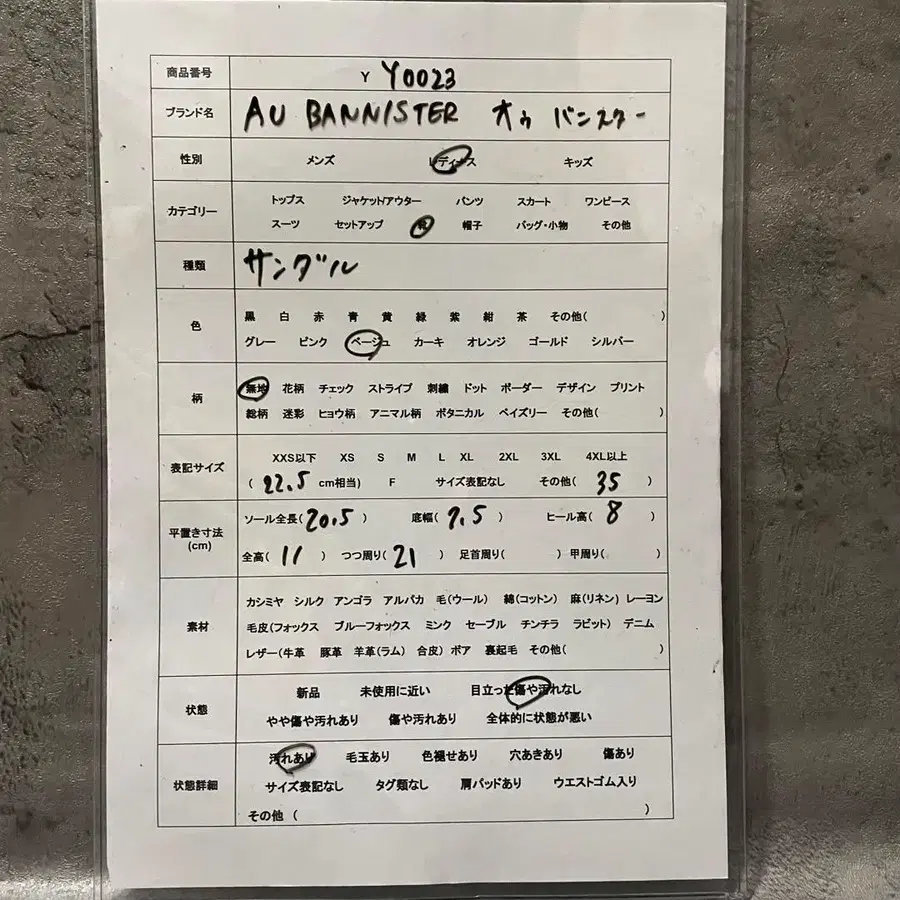 商品番号 Y Y0023
ブランド名 AU BANNISTER オゥ バンスター
性別 メンズ レディース キッズ
カテゴリー トップス ジャケット/アウター パンツ スカート ワンピース
スーツ セットアップ 靴 帽子 バッグ・小物 その他
種類 サンダル
色 黒 白 赤 青 黄 緑 紫 紺 茶 その他( )
グレー ピンク ベージュ カーキ オレンジ ゴールド シルバー
柄 無地 花柄 チェック ストライプ 刺繍 ドット ボーダー デザイン プリント
総柄 迷彩 ヒョウ柄 アニマル柄 ボタニカル ペイズリー その他( )
表記サイズ XXS以下 XS S M L XL 2XL 3XL 4XL以上
( 22.5 cm相当) F サイズ表記なし その他( 35 )
平置き寸法 (cm) ソール全長( 20.5 ) 底幅( 7.5 ) ヒール高( 8 )
全高( 11 ) つつ周り( 21 ) 足首周り( ) 甲周り( )
素材 カシミヤ シルク アンゴラ アルパカ 毛(ウール) 綿(コットン) 麻(リネン) レーヨン
毛皮(フォックス ブルーフォックス ミンク セーブル チンチラ ラビット) デニム
レザー(牛革 豚革 羊革(ラム) 合皮) ボア 裏起毛 その他( )
状態 新品 未使用に近い 目立った傷や汚れなし
やや傷や汚れあり 傷や汚れあり 全体的に状態が悪い
状態詳細 汚れあり 毛玉あり 色褪せあり 穴あきあり 傷あり
サイズ表記なし タグ類なし 肩パッドあり ウエストゴム入り
その他 ( )